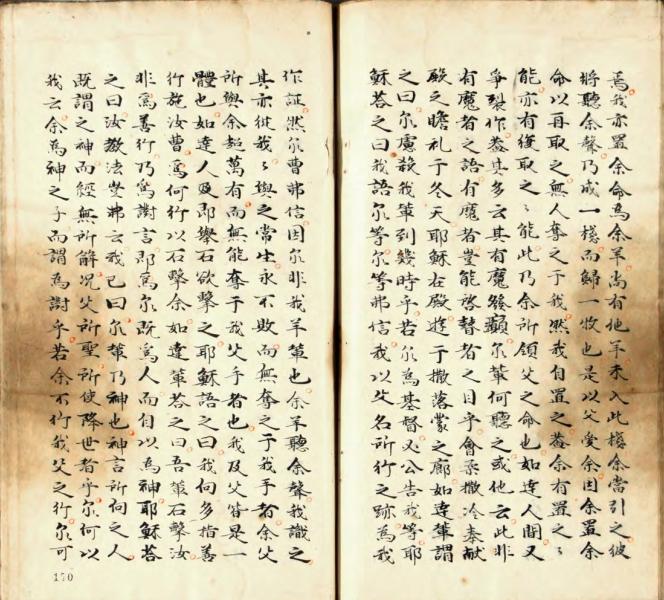 焉我亦置余命為余羊尚有他羊未入此棧余當引之彼
將聽余聲乃成一棧而歸一牧也是以父愛余因余置余
命以再取之無人奪之于我然我自置之蓋余有置之〻
能亦有復取之〻能此乃余所領父之命也如達人聞又
爭鬪作蓋其多云其有魔發癲尔輩何聽之或他云此非
有魔者之語有魔者豈能啓瞽者之目乎會柔撒冷奉献
殿之瞻礼于冬天耶穌在殿遊于撒落蒙之廊如達輩謂
之曰尔慮殺我輩到幾時乎若尔為基督又公告我等耶
穌荅之曰我語尔等尔等弗信我以父名所行之跡為我
作証然尔曹弗信因尔非我羊輩也余羊聽余聲我識之
其亦從我〻與之常生永不敗而無奪之于我手者余父
所與余超萬有而無能奪于我父手者也我及父皆是一
體也如達人即舉石欲擊之耶穌語之曰我向多指善
行施汝曹為何行以石擊余如達輩荅之曰吾輩石擊汝
非為善行乃為對言即為尔既為人而自以為神耶穌荅
之曰汝教法豈弗云我已曰尔輩乃神也神言所向之人
既謂之神而經無所解况父所聖所使降世者乎尔何以
我云余為神之子而謂為對乎若余不行我父之行尔可
170